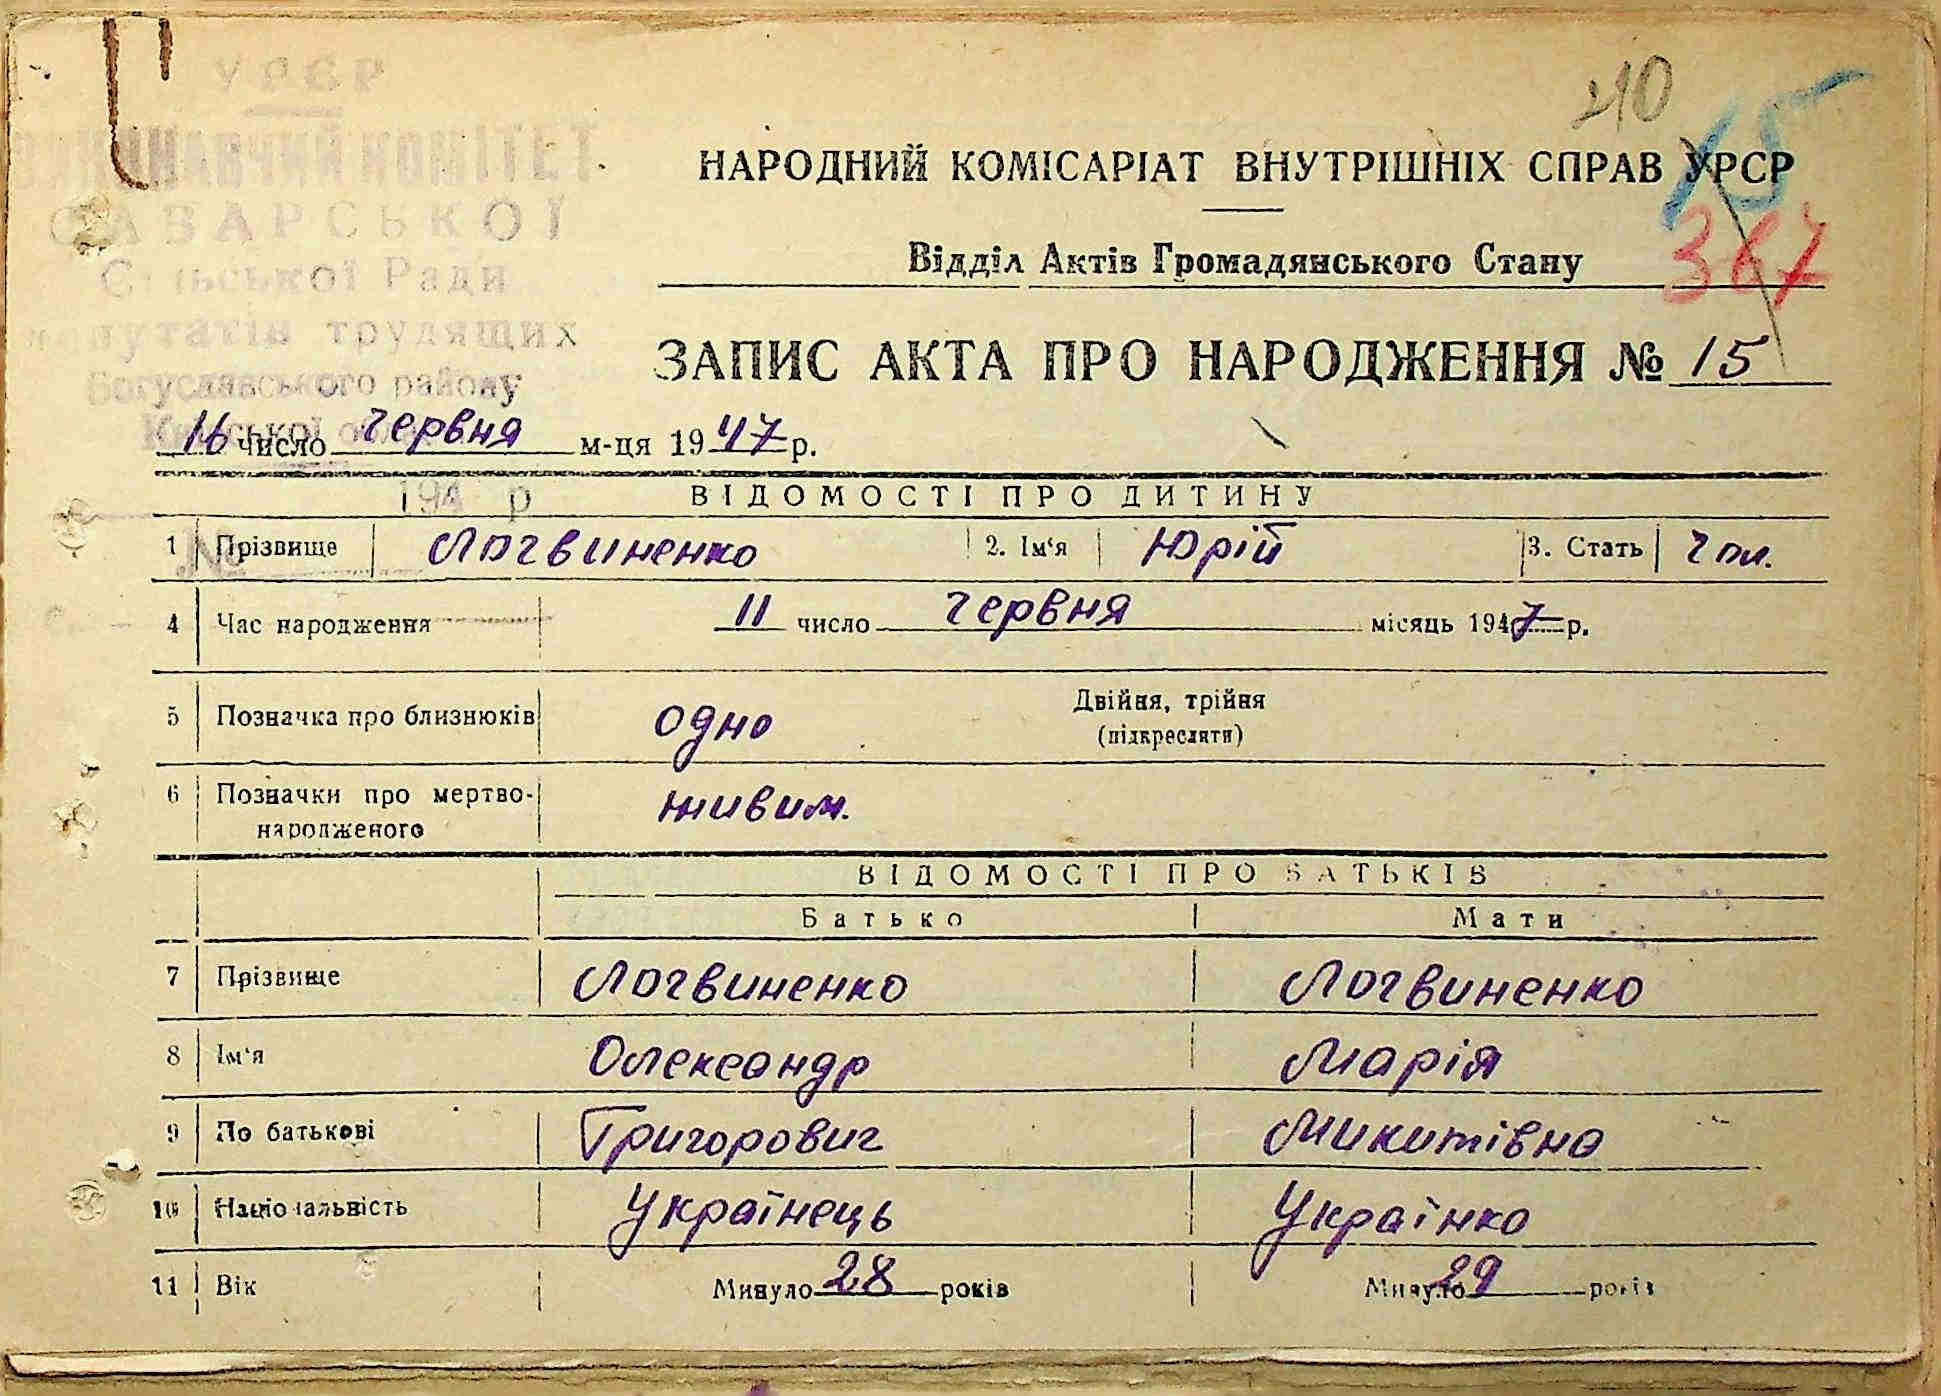 УРСР
ВИКОНАВЧИЙ КОМІТЕТ
САВАРСЬКОЇ
Сільської Ради
депутатів трудящих
Богуславського району
Київської
194 р
№
40
15
367
НАРОДНИЙ КОМІСАРІАТ ВНУТРІШНІХ СПРАВ УРСР
Відділ Актів Громадянського Стану
ЗАПИС АКТА ПРО НАРОДЖЕННЯ № 15
16 число червня м-ця 1947 р.
ВІДОМОСТІ ПРО ДИТИНУ
1 Прізвище Логвиненко 2. Ім'я Юрій 3. Стать чол.
4 Час народження 11 число червня місяць 1947 р.
5 Позначка про близнюків одно Двійня, трійня
(підкреслити)
6 Позначки про мертво-
народженого живим.
ВІДОМОСТІ ПРО БАТЬКІВ
Батько Мати
7 Прізвище Логвиненко Логвиненко
8 Ім'я Олександр Марія
9 По батькові Григорович Микитівна
10 Національність Українець Українка
11 Вік Минуло 28 років Минуло 29 років